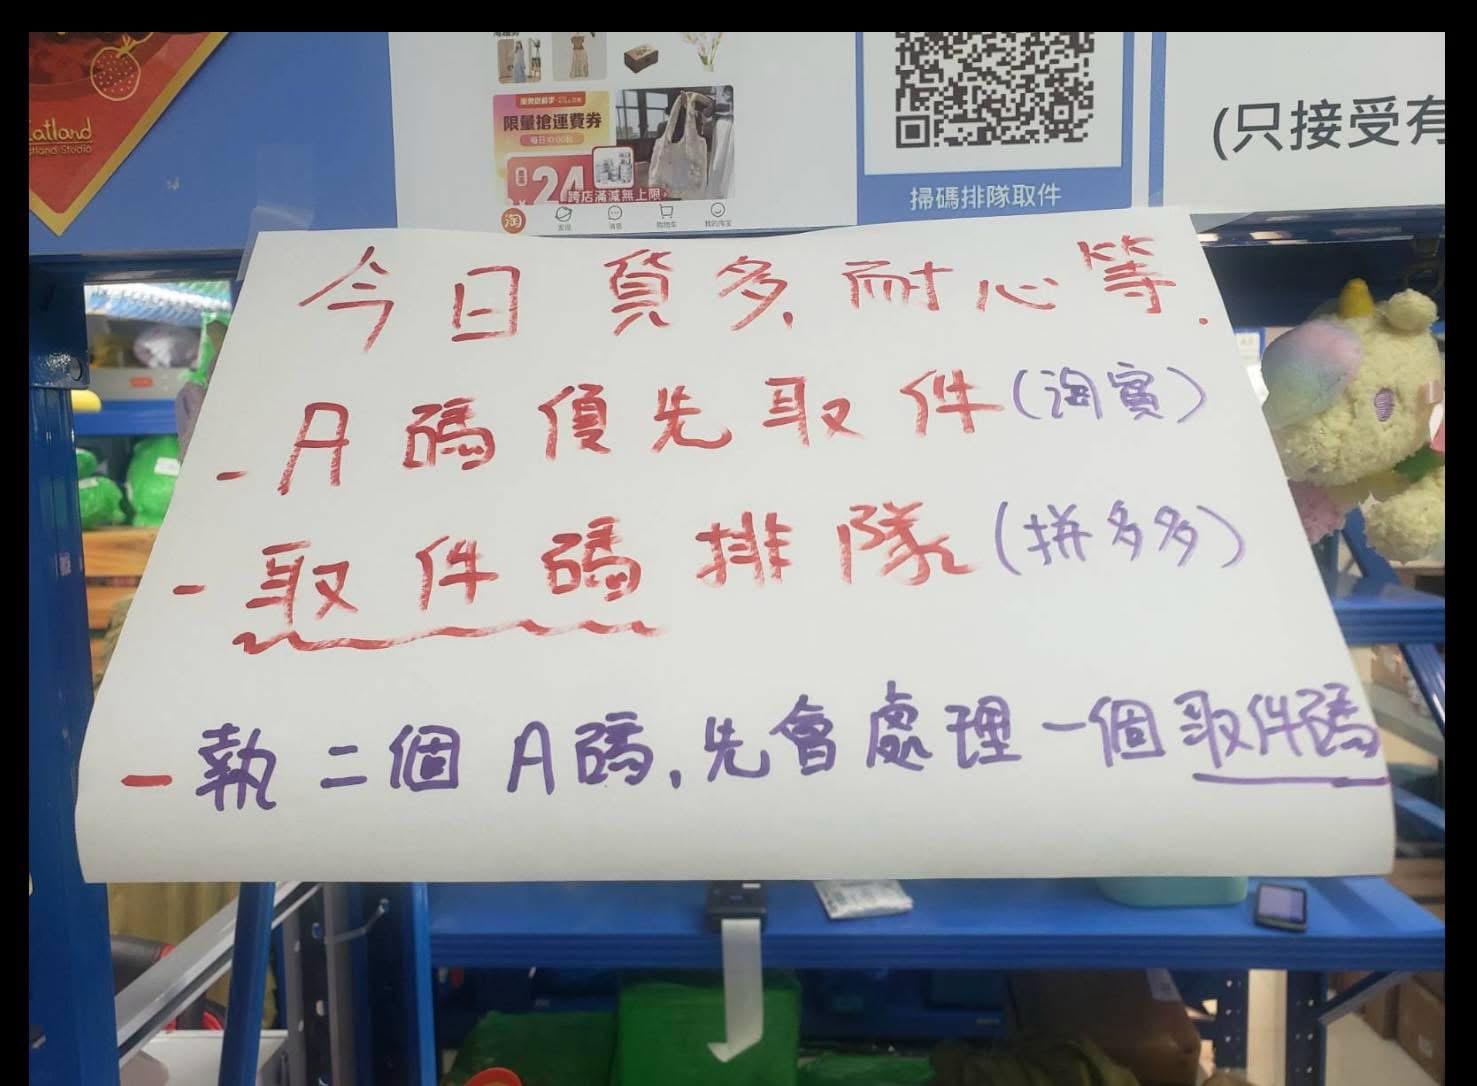 Catland
Catland Studio
限量搶運費券
每日10:00起
24
跨店滿減無上限
淘
消息
购物车
我的淘宝
掃碼排隊取件
(只接受有
今日貨多,耐心等.
- A 碼優先取件(淘寶)
- 取件碼排隊(拼多多)
- 執二個A碼,先會處理一個取件碼